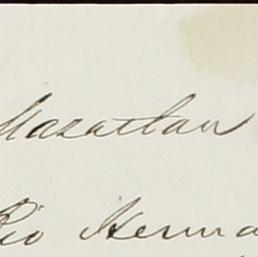 Mazatlan
Rio Herma